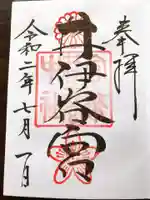 奉拝
井伊谷宮
令和二年七月一日